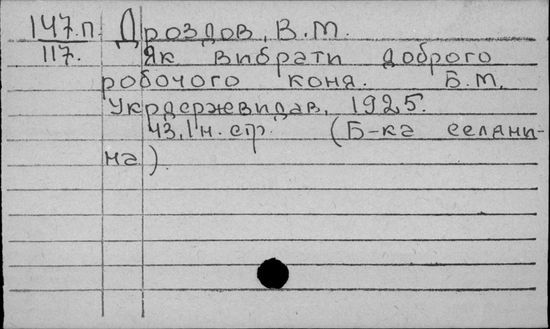 147.п. Дроздов, В.М.
117. Як вибрати доброго
робочого коня. Б.М.
Укрдержвидав, 1925.
43, 1 н. стр. (Б-ка селяни-
на).